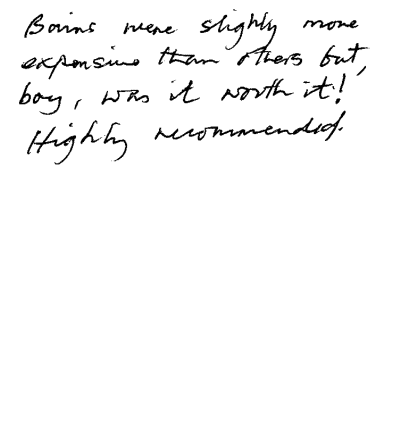 Bairns were slighly more
expensive than others but,
boy, was it worth it!
Highly recommended.